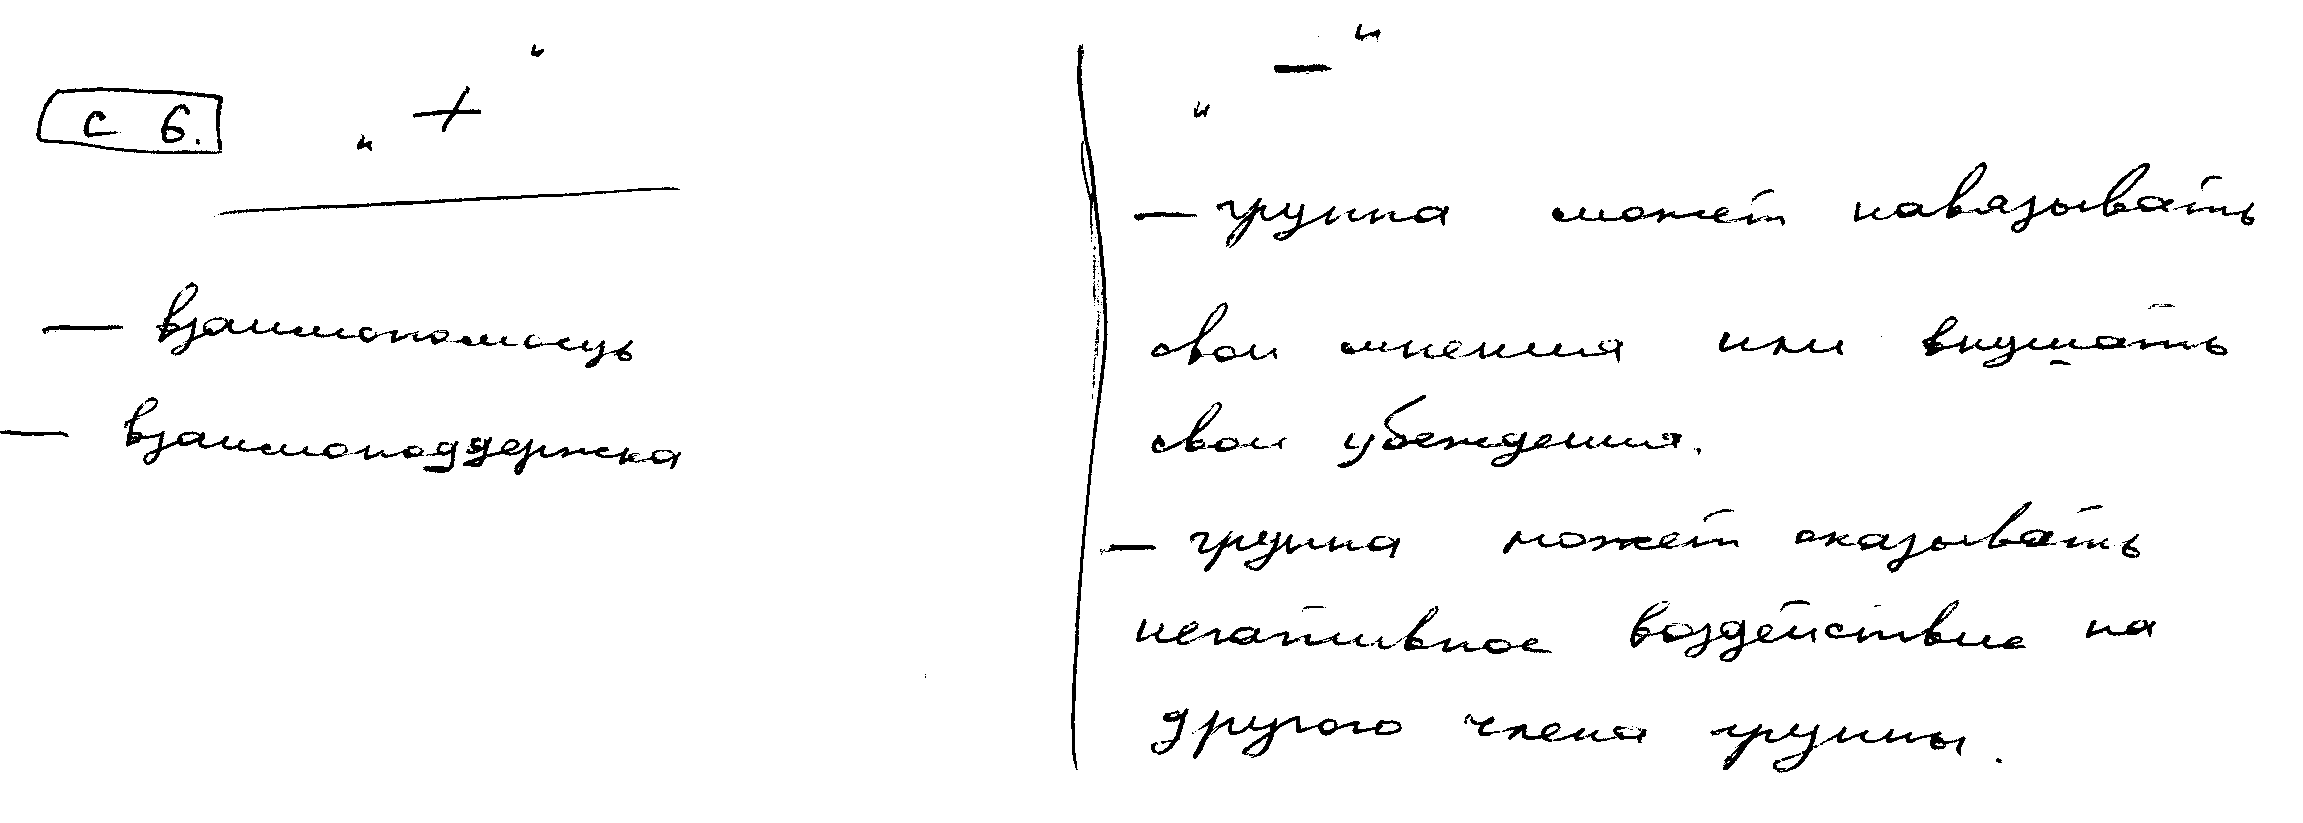 с 6.
„ + "
— взаимопомощь
— взаимоподдержка
„ — "
— группа может навязывать
свои мнения или внушать
свои убеждения.
— группа может оказывать
негативное воздействие на
другого члена группы.